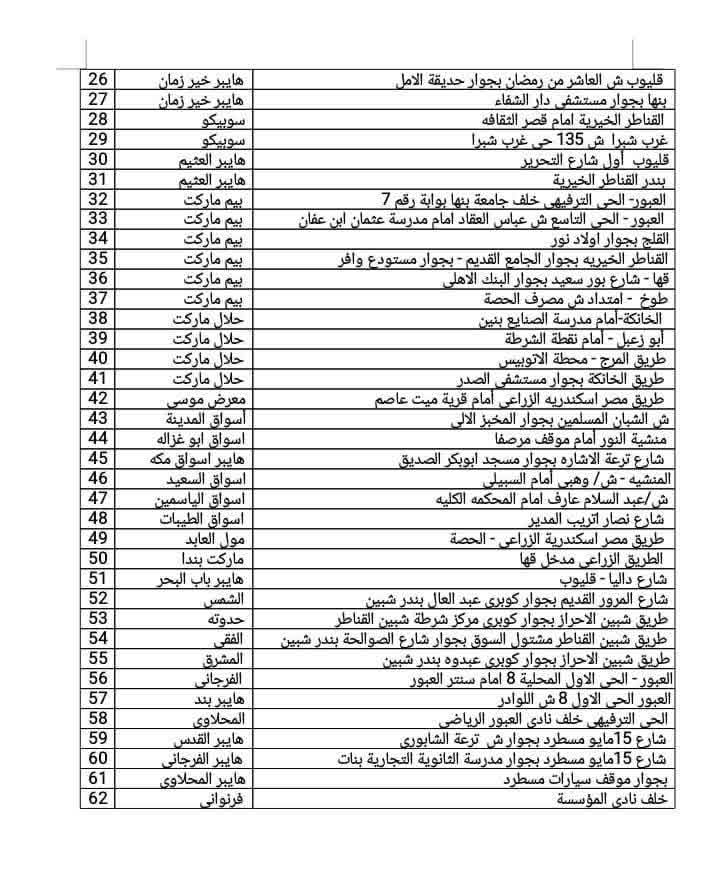 26 هايبر خير زمان قليوب ش العاشر من رمضان بجوار حديقة الامل
27 هايبر خير زمان بنها بجوار مستشفى دار الشفاء
28 سوبيكو القناطر الخيرية امام قصر الثقافه
29 سوبيكو غرب شبرا ش 135 حى غرب شبرا
30 هايبر العثيم قليوب أول شارع التحرير
31 هايبر العثيم بندر القناطر الخيرية
32 بيم ماركت العبور- الحى الترفيهى خلف جامعة بنها بوابة رقم 7
33 بيم ماركت العبور - الحى التاسع ش عباس العقاد امام مدرسة عثمان ابن عفان
34 بيم ماركت القلج بجوار اولاد نور
35 بيم ماركت القناطر الخيريه بجوار الجامع القديم - بجوار مستودع وافر
36 بيم ماركت قها - شارع بور سعيد بجوار البنك الاهلى
37 بيم ماركت طوخ - امتداد ش مصرف الحصة
38 حلال ماركت الخانكة-أمام مدرسة الصنايع بنين
39 حلال ماركت أبو زعبل - أمام نقطة الشرطة
40 حلال ماركت طريق المرج - محطة الاتوبيس
41 حلال ماركت طريق الخانكة بجوار مستشفى الصدر
42 معرض موسى طريق مصر اسكندريه الزراعى أمام قرية ميت عاصم
43 أسواق المدينة ش الشبان المسلمين بجوار المخبز الالى
44 اسواق ابو غزاله منشية النور أمام موقف مرصفا
45 هايبر اسواق مكه شارع ترعة الاشاره بجوار مسجد ابوبكر الصديق
46 اسواق السعيد المنشيه - ش/ وهبى أمام السبيلى
47 اسواق الياسمين ش/عبد السلام عارف امام المحكمه الكليه
48 اسواق الطيبات شارع نصار اتريب المدير
49 مول العابد طريق مصر اسكندرية الزراعى - الحصة
50 ماركت بندا الطريق الزراعى مدخل قها
51 هايبر باب البحر شارع داليا - قليوب
52 الشمس شارع المرور القديم بجوار كوبرى عبد العال بندر شبين
53 حدوته طريق شبين الاحراز بجوار كوبرى مركز شرطة شبين القناطر
54 الفقى طريق شبين القناطر مشتول السوق بجوار شارع الصوالحة بندر شبين
55 المشرق طريق شبين الاحراز بجوار كوبرى عبدوه بندر شبين
56 الفرجانى العبور - الحى الاول المحلية 8 امام سنتر العبور
57 هايبر بند العبور الحى الاول 8 ش اللوادر
58 المحلاوى الحى الترفيهى خلف نادى العبور الرياضى
59 هايبر القدس شارع 15مايو مسطرد بجوار ش ترعة الشابورى
60 هايبر الفرجانى شارع 15مايو مسطرد بجوار مدرسة الثانوية التجارية بنات
61 هايبر المحلاوى بجوار موقف سيارات مسطرد
62 فرنوانى خلف نادى المؤسسة